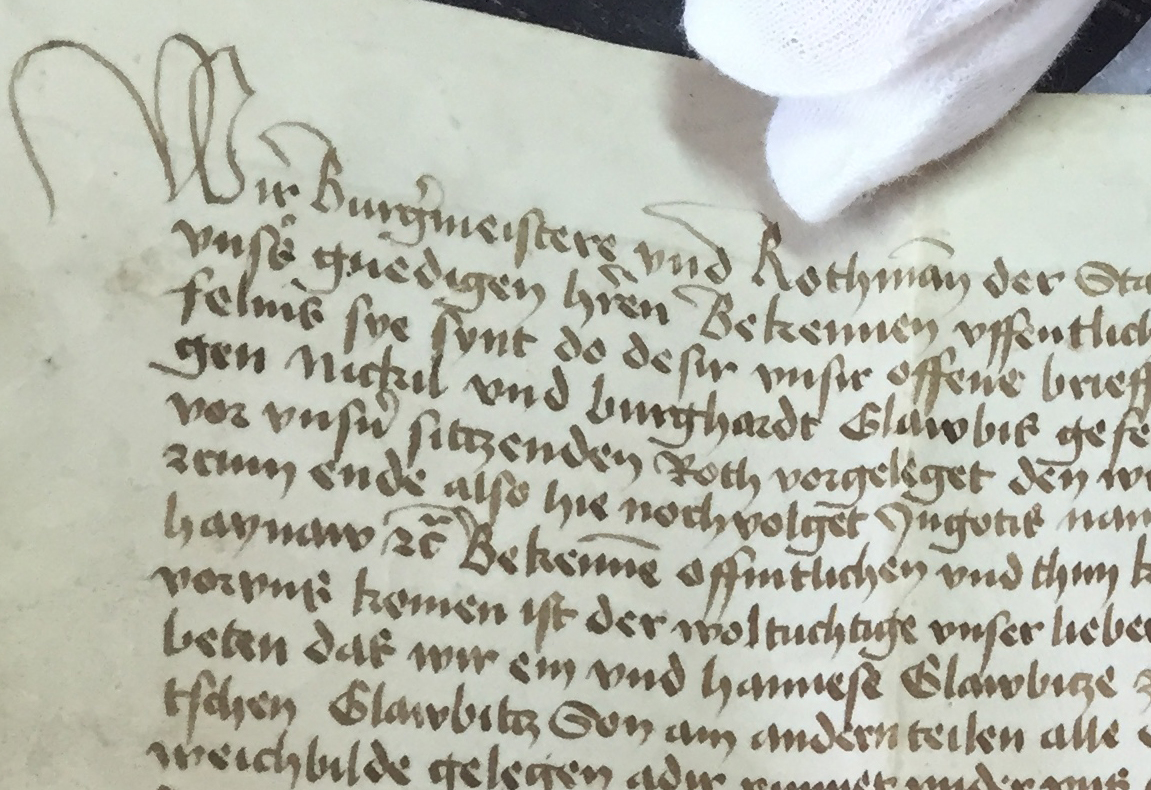 Wir Burgmeistere vnd Rothman der Sta
vnsß gnedigen hren Bekennen offentlich
sye synt do desir vnsir offene brieff
gen Nickil vnd burghardt Glawbis gese
vor vnsn sittzenden Roth vorgeleget den
zcum ende also hie noch volget Jngotis nam
haynaw zc Bekenne offintlichen vnd thun k
vorvnß komen ist der woltuchtige vnser liebe
beten das wir em vnd hannese Glawbitze
tschen Glawbitz Son am andern teilen alle
weichbilde gelegen adir